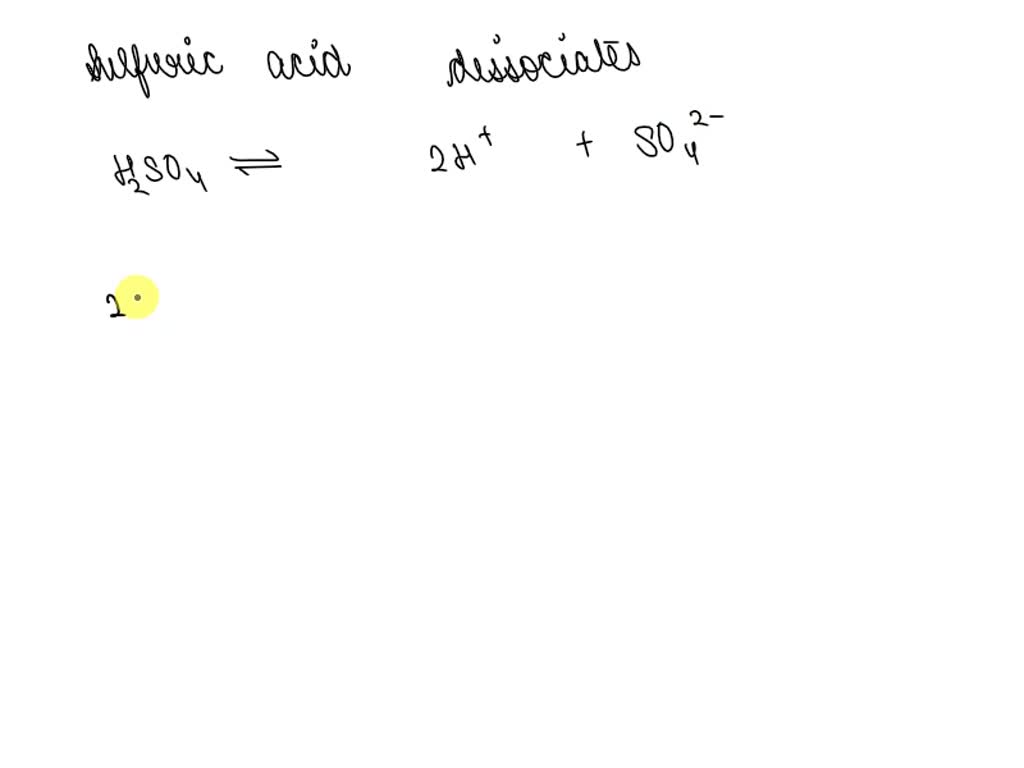 Sulfuric acid dissociates
H₂SO₄ ⇌ 2H⁺ + SO₄²⁻
2